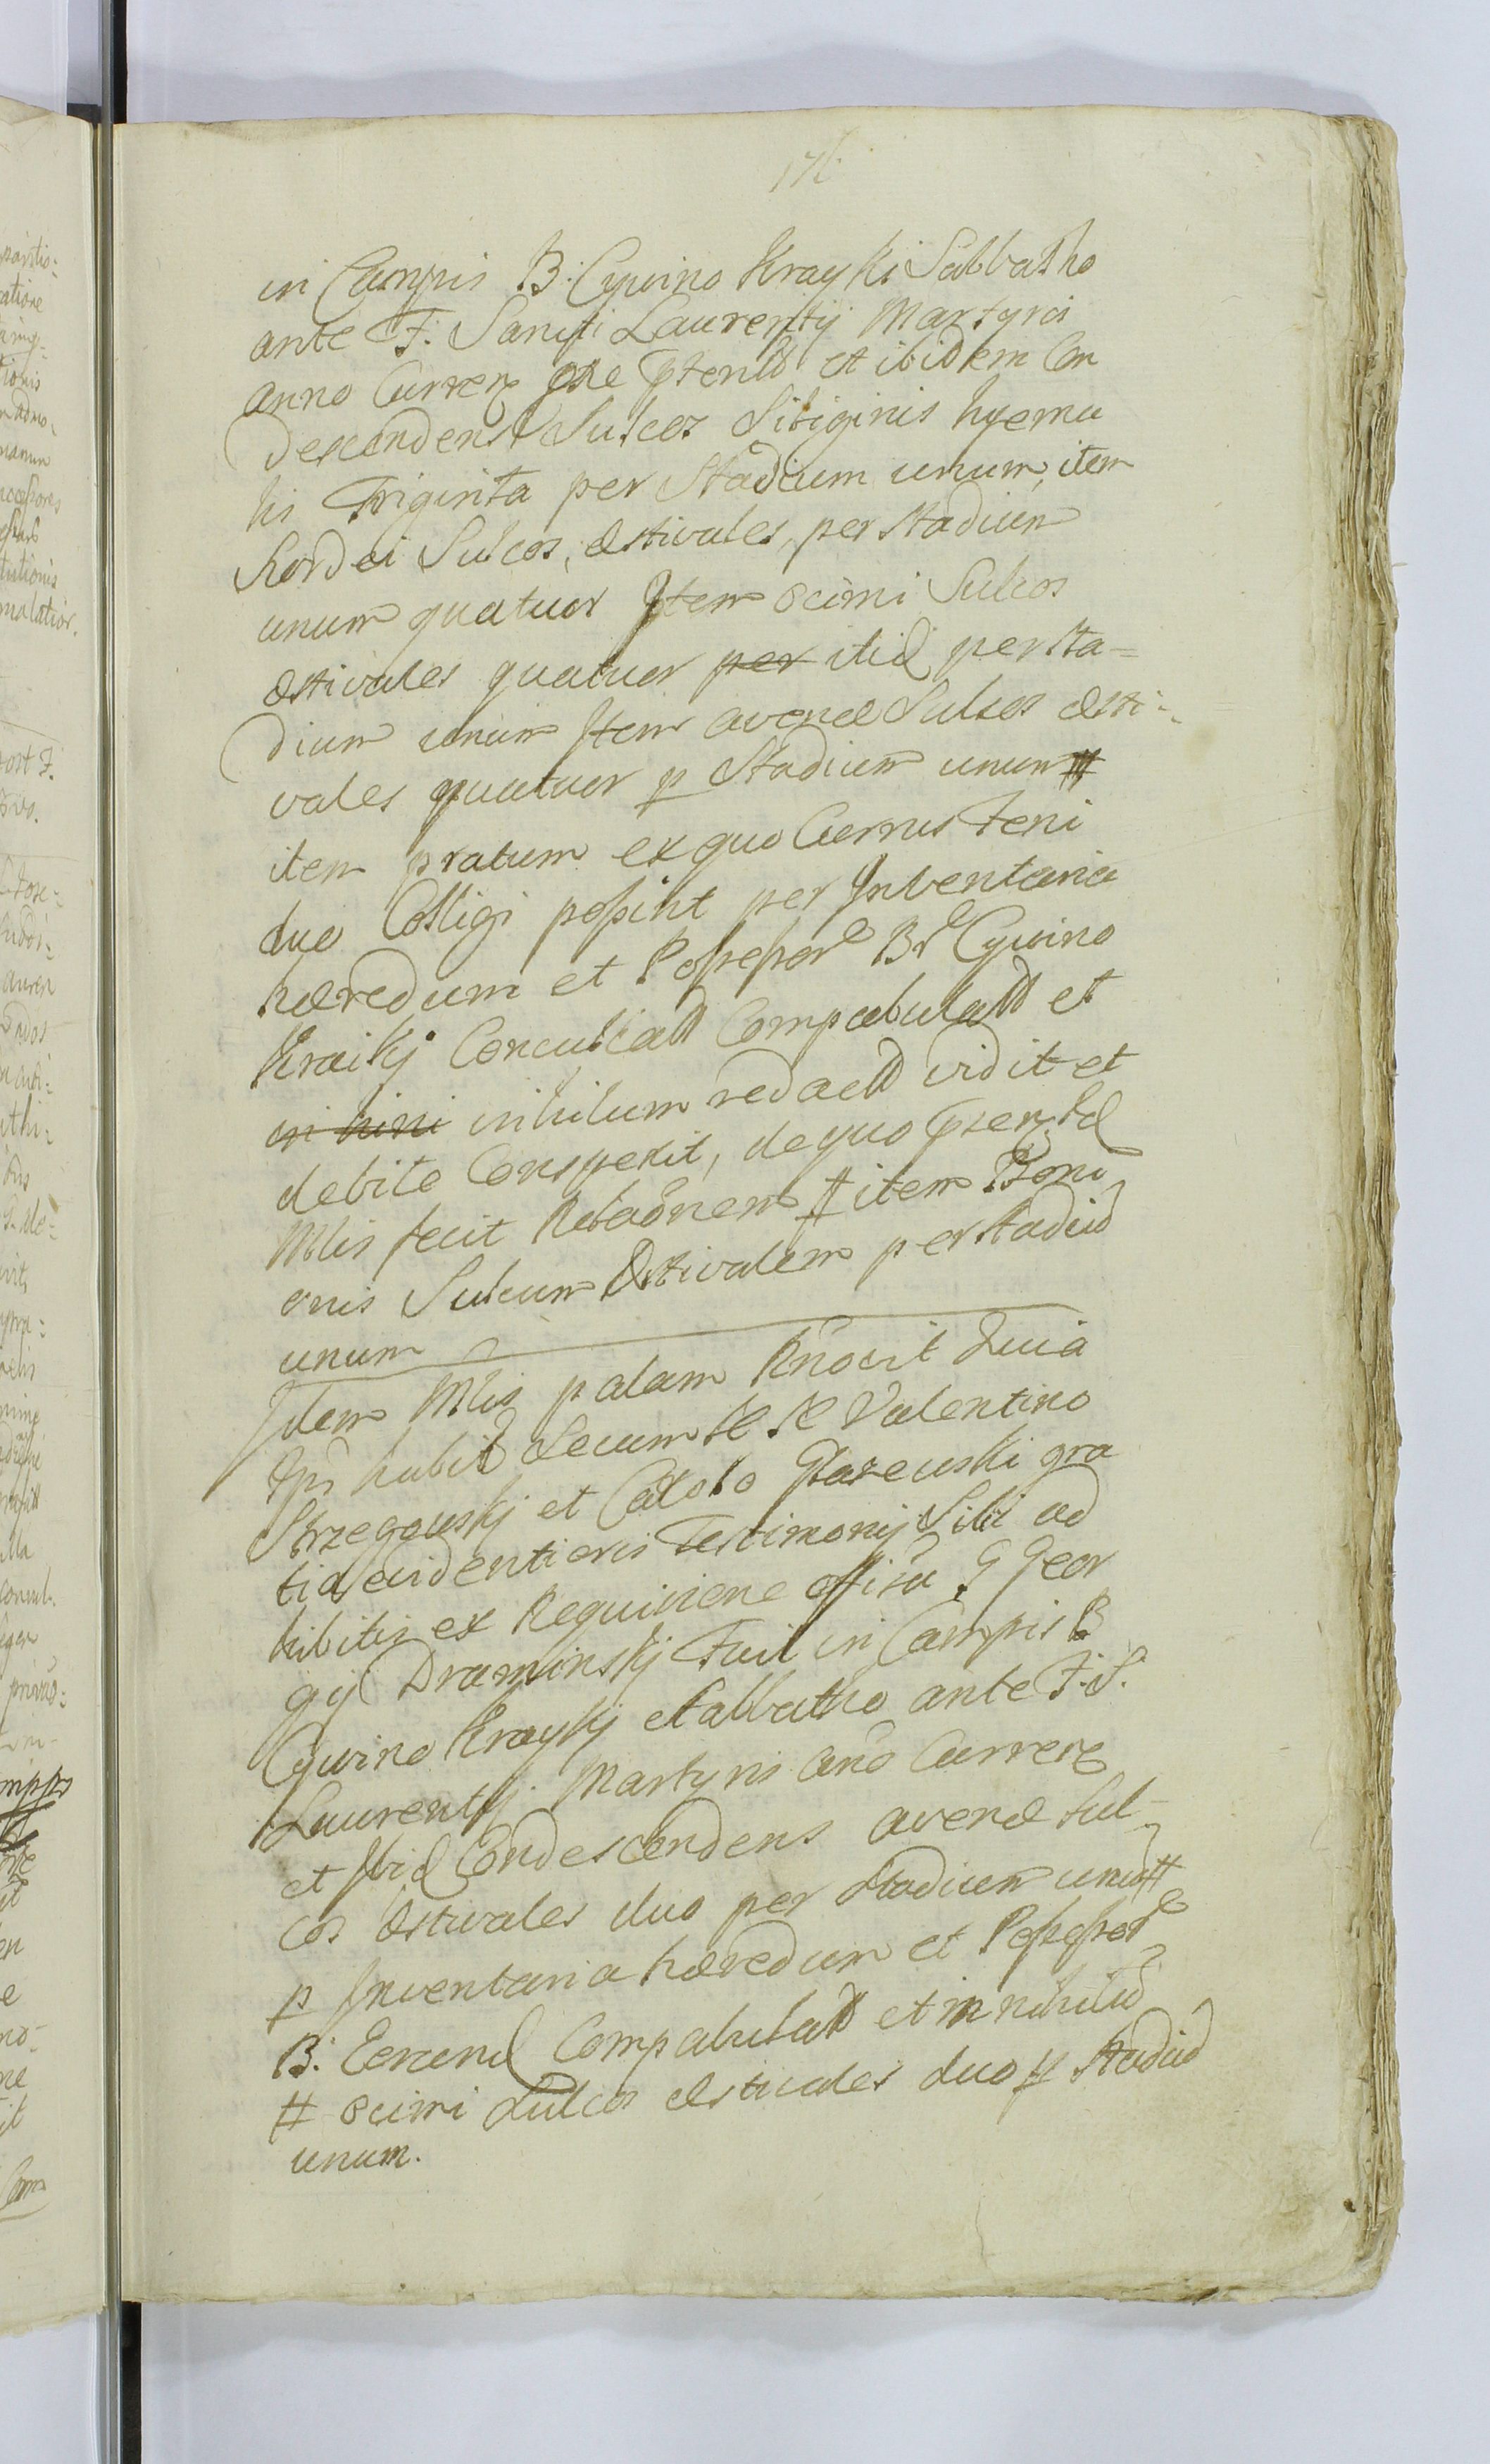 176
in Campis B: Cywino Krayki Sabbatho
ante F: Sancti Laurentij Martyris
anno Curren pñe pterito et ibidem Con
descendens Sulcos Siliginis hyema
lis Triginta per Stadium unum, item
hordei Sulcos, æstivales, per stadium
unum quatuor Item ocimi Sulcos
æstivales quatuor per itid per sta=
dium unum Item avenæ Sulcos æsti=
vales quatuor p Stadium unum #
item pratum ex quo Currus Feni
duo Colligi possint per Inventaria
hæredum et Possessor Br Cywino
Kraikj Conculcatt Compabulatt et
in nini inihilum redactt vidit et
debite Conspexit, de quo
Mlis fecit Relaõnem # item
onis Sulcum Æstivalem per stadiũ
unum
Idem Mlis palam Rñovit Quia
Ipse habit Secum N N Valentino
Strzegouskj et Carolo Glazewski gra
tia evidentioris Testimonij Sibi ad
hibitis ex Requiãne offisã G Geor
gij Draminskj Fuit in Campis B
Cywino Kraykj Sabbatho ante F. S.
Laurentij Martyris Anõ Curren
et Ibid Condescendens avenæ Sul-
cos Æstivales duo per Stadium unũ #
p Inventaria hæredum et Possessor
B: Compabulatt et in nihilũ
# ocimi Sulcos æstivales duo p Stadiũ
unum.